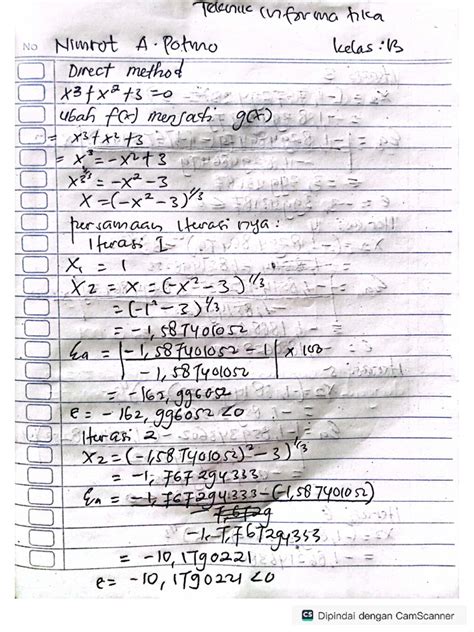 Teknik informatika
No Nimrot A. Potmo kelas : B
Direct method
x³ + x² + 3 = 0
ubah f(x) menjadi g(x)
= x³ + x² + 3
= x³ = -x² + 3
x = -x² - 3
x = (-x² - 3)^1/3
persamaan Iterasi nya :
Iterasi I
X₁ = 1
X2 = x = (-x² - 3)^1/3
= (-1² - 3)^1/3
= -1,587401052
Ea = | -1,587401052 - 1 | x 100
-1,587401052
= -162,996052
e = -162,996052 < 0
Iterasi 2
X2 = (-1,587401052)² - 3)^1/3
= -1,767294333
Ea = -1,767294333 - (-1,587401052)
= -10,1790221
e = -10,1790221 < 0
CS Dipindai dengan CamScanner